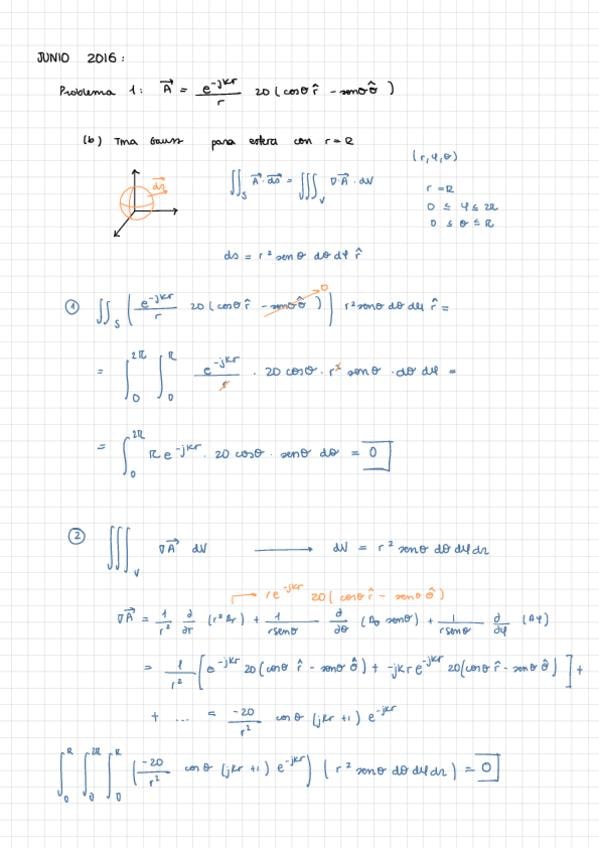 JUNIO 2016:
Problema 1: A⃗ = e^{-jkr}/r 20 (cosθ r̂ - senθ θ̂)
(b) Tma Gauss para esfera con r=R
(r, φ, θ)
ds⃗
∬_S A⃗·ds⃗ = ∭_V ∇·A⃗·dV
r = R
0 ≤ φ ≤ 2π
0 ≤ θ ≤ π
ds = r² sen θ dθ dφ r̂
① ∬_S (e^{-jkr}/r 20 (cosθ r̂ - senθ θ̂)) r² senθ dθ dφ r̂ =
0
= ∫_0^{2π} ∫_0^{π} e^{-jkr}/r · 20 cosθ · r² senθ · dθ dφ =
= ∫_0^{2π} R e^{-jkr} · 20 cosθ · senθ dθ = 0
② ∭_V ∇A⃗ dV → dV = r² senθ dθ dφ dr
r e^{-jkr} 20 (cosθ r̂ - senθ θ̂)
∇A⃗ = 1/r² ∂/∂r (r² Ar) + 1/(r senθ) ∂/∂θ (Aθ senθ) + 1/(r senθ) ∂/∂φ (Aφ)
= 1/r² [e^{-jkr} 20 (cosθ r̂ - senθ θ̂) + -jkr e^{-jkr} 20 (cosθ r̂ - senθ θ̂)] +
+ ... = -20/r² cos θ (jkr +1) e^{-jkr}
∫_0^R ∫_0^{2π} ∫_0^{π} (-20/r² cos θ (jkr +1) e^{-jkr}) (r² senθ dθ dφ dr) = 0